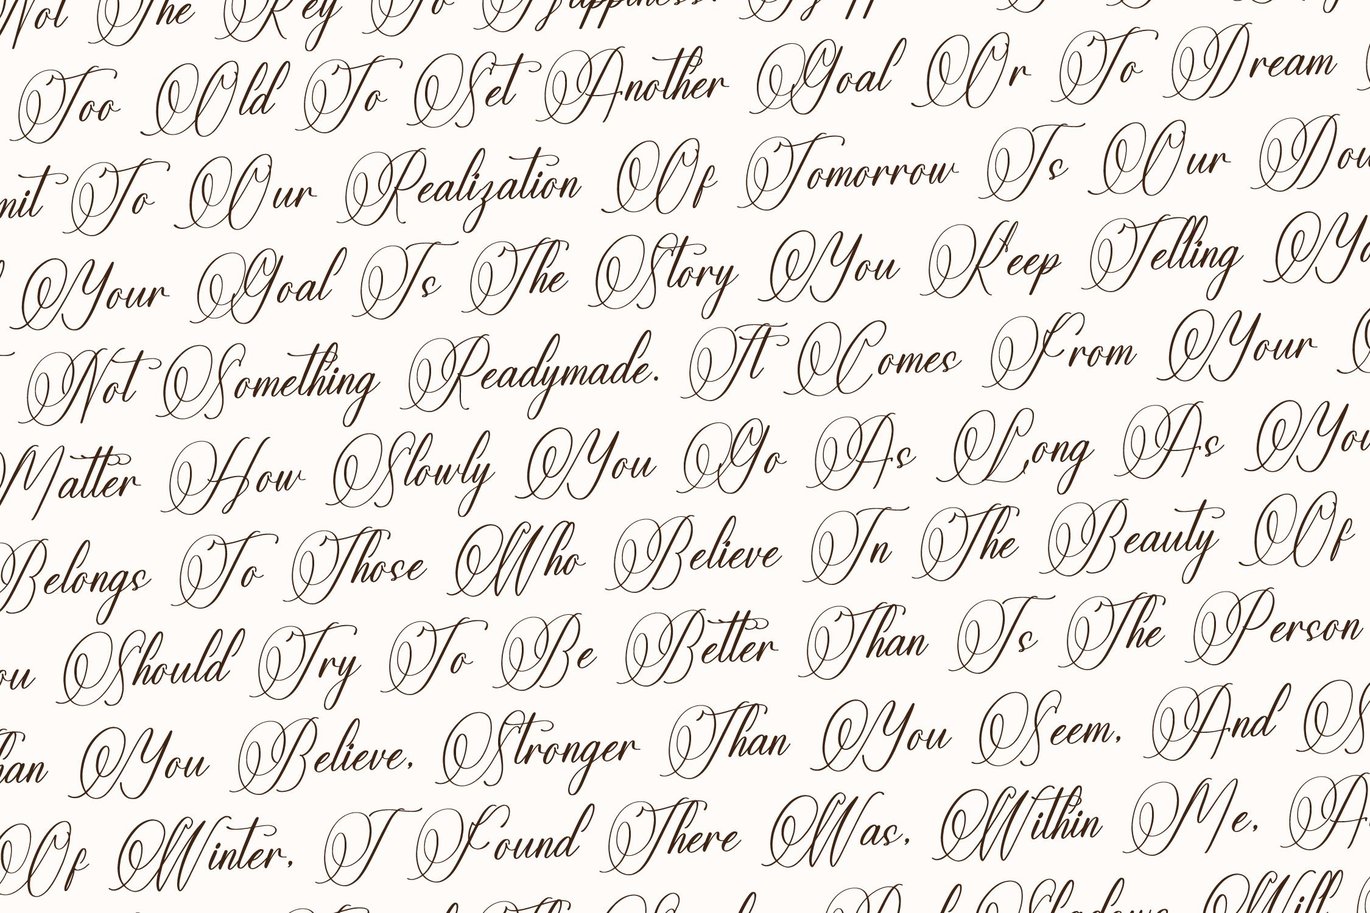 Not The Key To Happiness.
Too Old To Set Another Goal Or To Dream
mit To Our Realization Of Tomorrow Is Our Dou
Your Goal Is The Story You Keep Telling Yo
Not Something Readymade. It Comes From Your
Matter How Slowly You Go As Long As You
Belongs To Those Who Believe In The Beauty Of
ou Should Try To Be Better Than Is The Person
han You Believe, Stronger Than You Seem, And S
Of Winter, I Found There Was, Within Me, A
Shadows Will